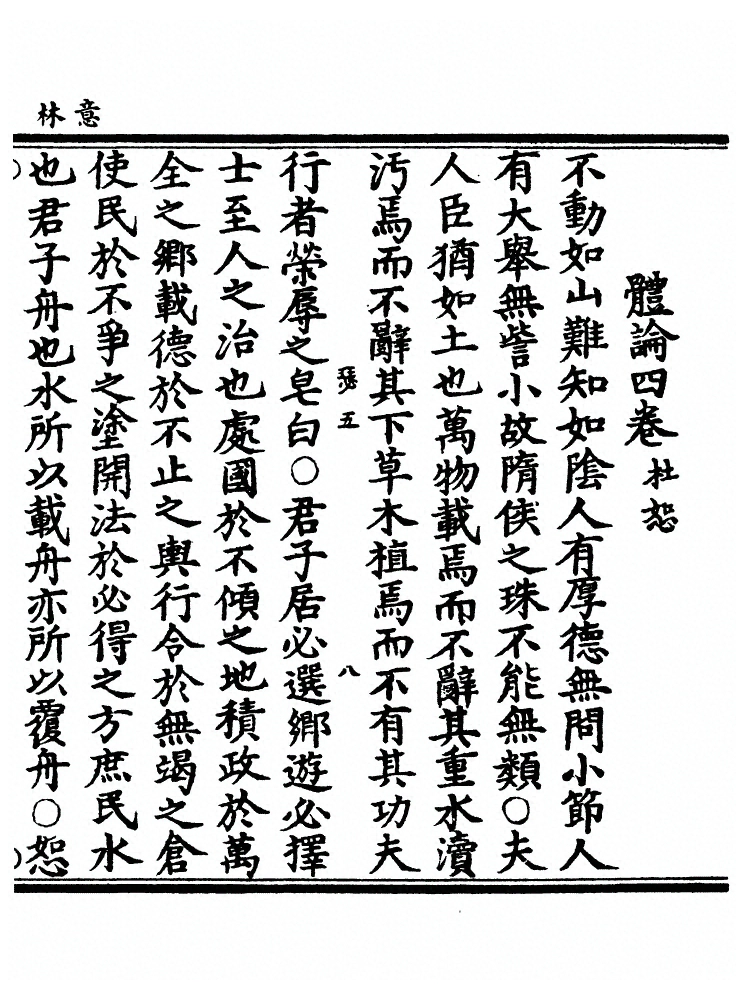 意林
體論四卷 杜恕
不動如山難知如陰人有厚德無問小節人
有大舉無訾小故隋侯之珠不能無類○夫
人臣猶如土也萬物載焉而不辭其重水瀆
汚焉而不辭其下草木植焉而不有其功夫
五 八
行者榮辱之皂白○君子居必選鄉遊必擇
士至人之治也處國於不傾之地積政於萬
全之鄉載德於不止之輿行令於無竭之倉
使民於不爭之塗開法於必得之方庶民水
也君子舟也水所以載舟亦所以覆舟○恕